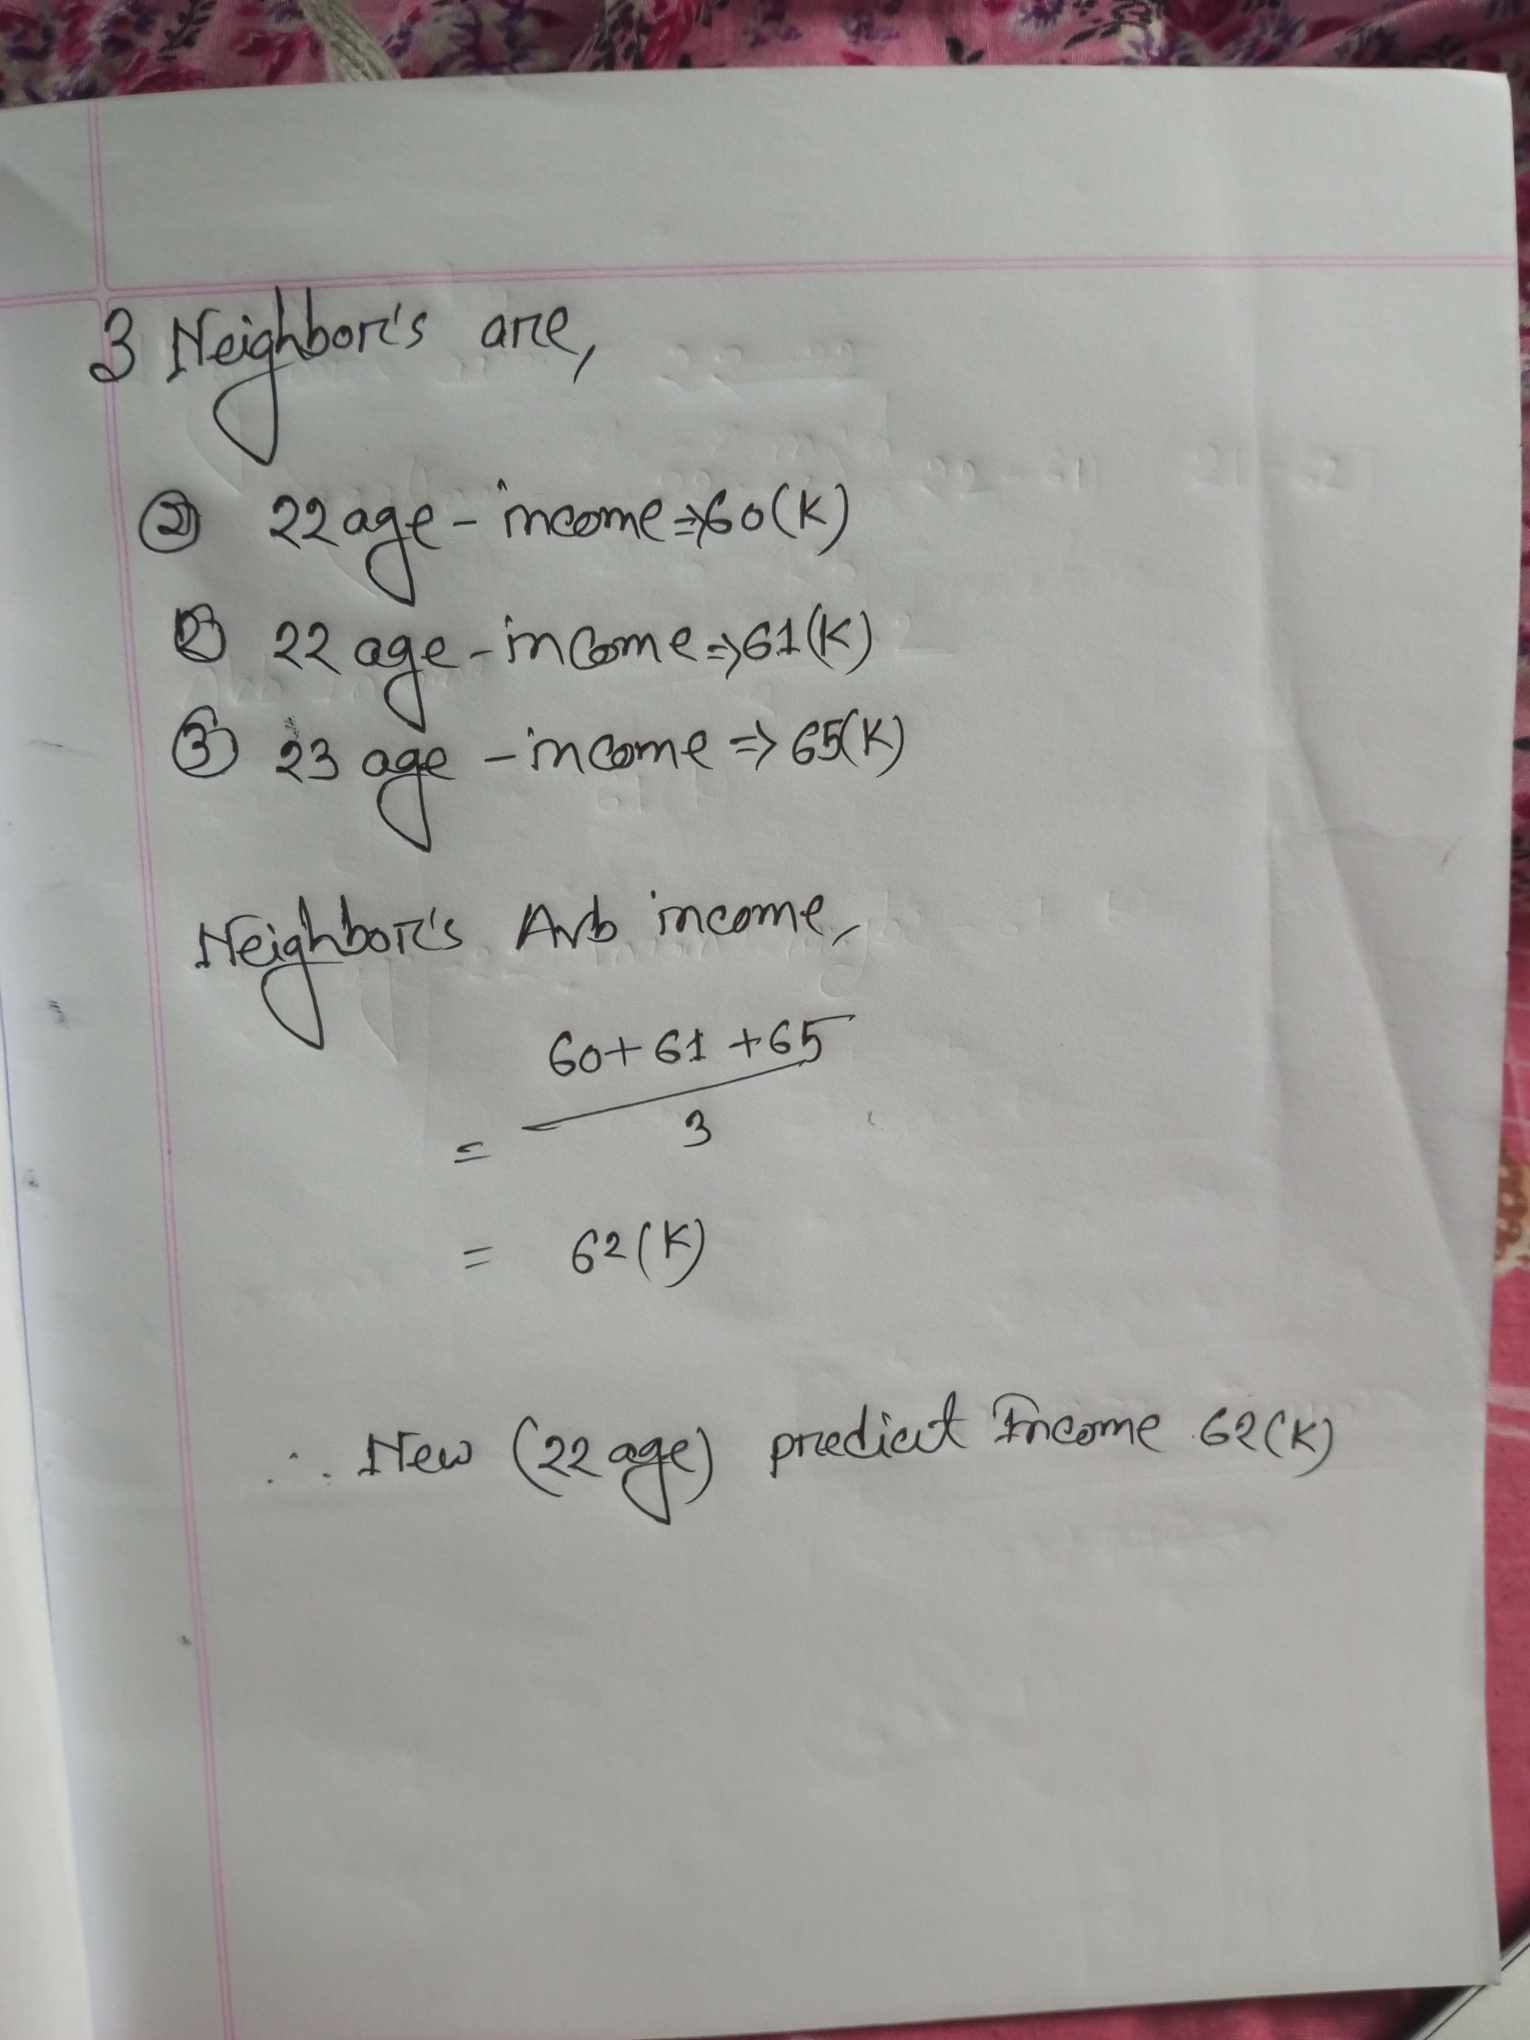 3 Neighbor's are,
② 22 age - income => 60(K)
② 22 age - income => 61(K)
③ 23 age - income => 65(K)
Neighbor's Avb income,
60+61+65
3
=
= 62(K)
∴ New (22 age) predict Income 62(K)